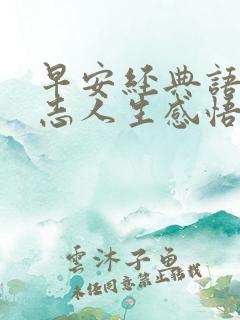 早安經典語
志人生感悟
雲沐子魚
未经同意禁止搭载